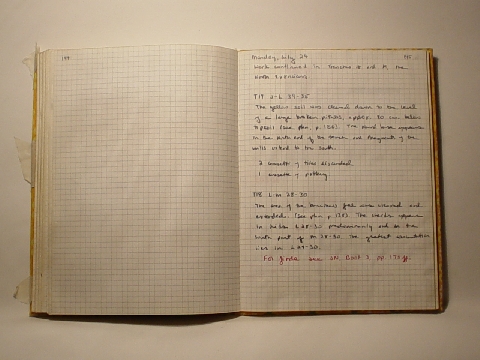 194
Monday, July 24 195
Work continued in Trenches 18 and 19, the
North Extensions.
T19 J-L 29-35
The yellow soil was cleaned down to the level
of a large broken pithos, approx. 30 cm below
topsoil (see plan, p. 136). The mud
in the north end of the trench and fragments of the
walls extend to the south.
2 cassette of tiles discarded
1 cassette of pottery
T18 L-M 28-30
The area of the tile fall was cleaned and
extended. (see plan p. 138). The appear
in L 28-30 predominantly and in the
south part of M 28-30. The greatest
is in L 29-30.
For finds see SN, Book 3, pp. 173 ff.